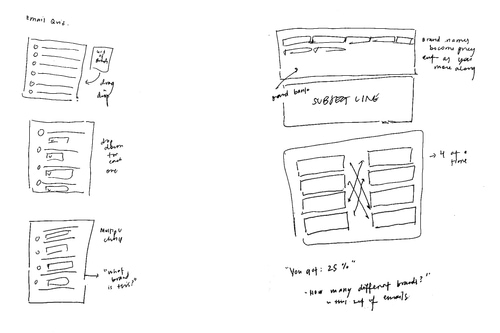 Email Quiz.
list of brands
drag + drop
drop down for each one
Multiple choice
"what brand is this?"
Brand names become grey out as you move along
Brand bank
SUBJECT LINE
→ 4 at a time
"You got: 25%"
- How many different brands?"
this set of emails